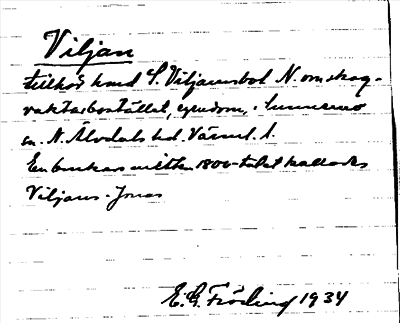 Viljan
tillhör hmd S. Viljamsbol N. om skog-
vaktarbostället, egendom, i Sunnemo
sn. N. Älvdals hd. Värml. l.
En brukare i mitten 1800-talet kallades
Viljans-Jonas
E. G. Fröding 1934